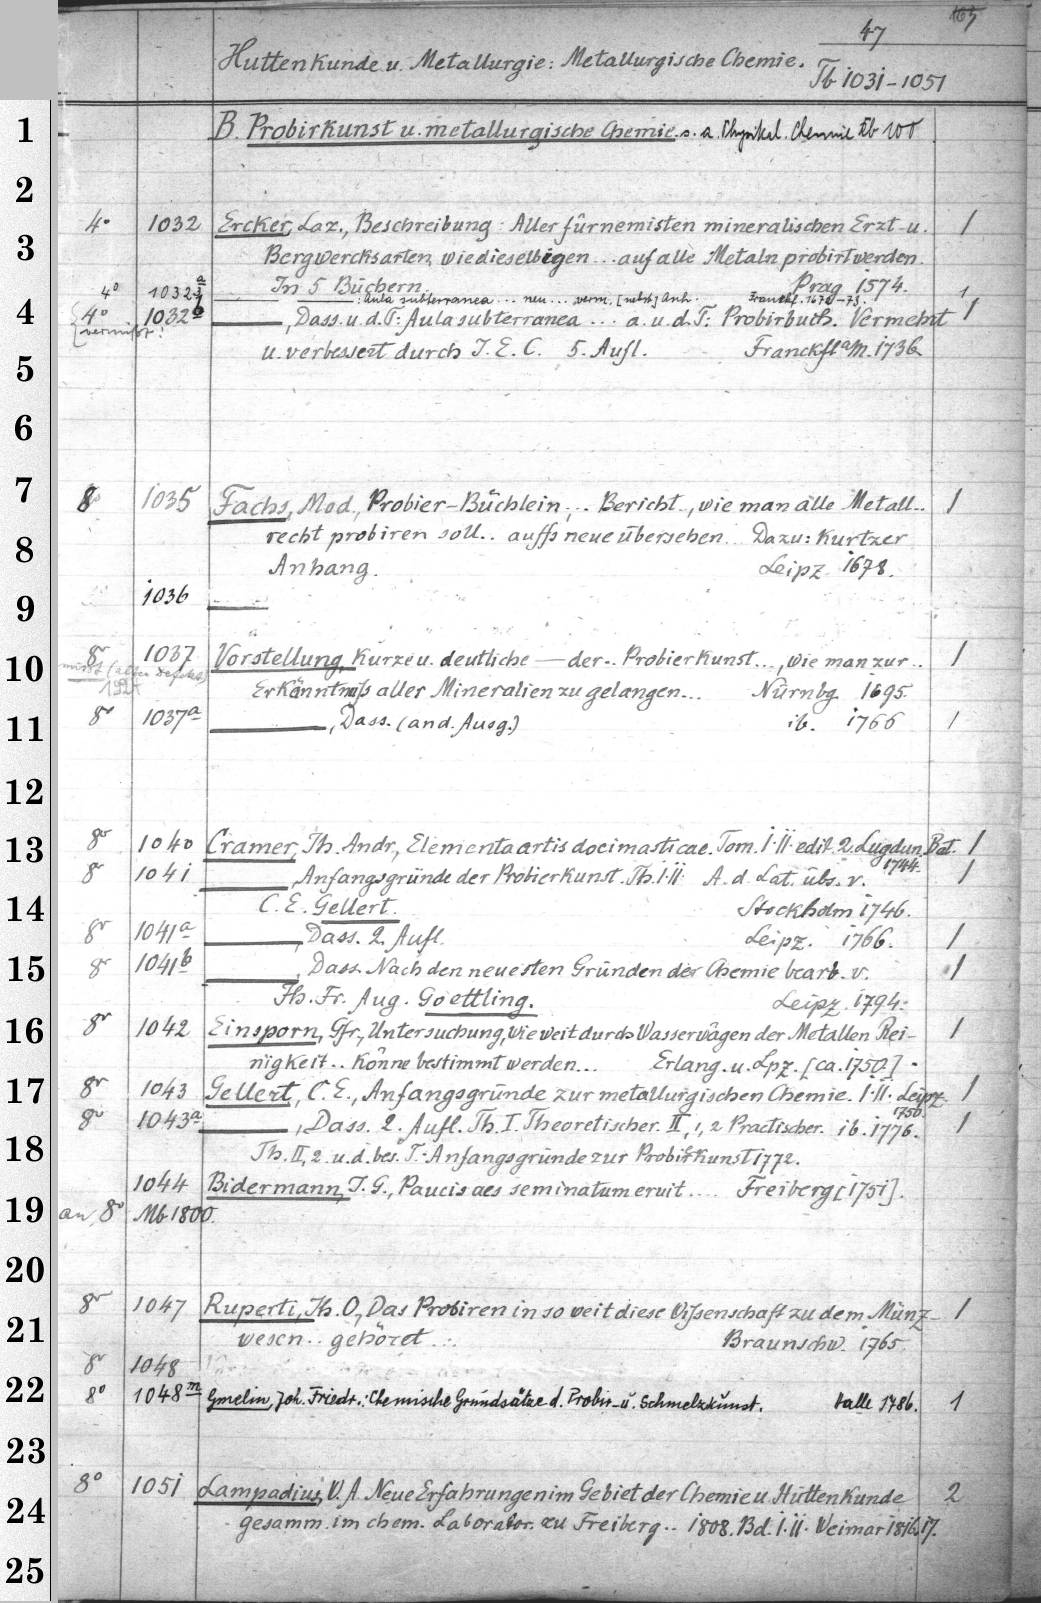 163
47
Huttenkunde u. Metallurgie: Metallurgische Chemie. Tb 1031-1051
1 B. Probirkunst u. metallurgische Chemie. s. a. Physikal. Chemie Tb 100
2
4° 1032 Ercker, Laz., Beschreibung: Aller fürnemisten mineralischen Erzt- u. 1
3 Bergwercksarten, wie dieselbigen ... auf alle Metaln probirt werden
In 5 Büchern. Prag 1574.
4° 1032 a : Aula subterranea ... neu ... verm. [nebst] Anh. Franckf. 1672-73. 1
4 4° 1032 b , Dass. u. d. T: Aula subterranea ... a. u. d. T: Probirbuch. Vermehrt 1
vermißt! u. verbessert durch J. E. C. 5. Aufl. Franckf a/M. 1736
5
6
7 8° 1035 Fachs, Mod., Probier-Büchlein, .. Bericht .., wie man alle Metall .. 1
8 recht probiren soll .. auffs neue übersehen. Dazu: Kurtzer
Anhang. Leipz 1678.
9 1036
8° 1037 Vorstellung, Kurze u. deutliche — der .. Probierkunst ..., wie man zur .. 1
10 Erkänntnuß aller Mineralien zu gelangen ... Nürnbg 1695.
8° 1037a , Dass. (and. Ausg.) ib. 1766 1
11
12
13 8° 1040 Cramer, Jh. Andr., Elementa artis docimasticae. Tom. I.II. edit. 2. Lugdun. Bat. 1744. 1
8° 1041 , Anfangsgründe der Probierkunst. Th. I.II A. d. Lat. übs. v. 1
14 C. E. Gellert. Stockholm 1746.
8° 1041a , Dass. 2. Aufl. Leipz. 1766. 1
15 8° 1041b , Dass. Nach den neuesten Gründen der Chemie bearb. v. 1
Jh. Fr. Aug. Goettling. Leipz. 1794.
16 8° 1042 Einsporn, Gfr., Untersuchung, wie weit durch Wasserwägen der Metallen Rei- 1
nigkeit .. könne bestimmt werden ... Erlang. u. Lpz. [ca. 1750]
17 8° 1043 Gellert, C. E., Anfangsgründe zur metallurgischen Chemie. I.II. Leipz. 1750. 1
8° 1043a , Dass. 2. Aufl. Th. I. Theoretischer. II, 1, 2 Practischer. ib. 1776. 1
18 Th. II, 2 u. d. bes. T: Anfangsgründe zur Probirkunst 1772.
1044 Bidermann, J. G., Paucis aes seminatum eruit .... Freiberg [1751].
19 an 8° Mb 1800.
20
8° 1047 Ruperti, Jh. O., Das Probiren in so weit diese Wißenschaft zu dem Münz- 1
21 wesen .. gehöret ... Braunschw. 1765
8° 1048
22 8° 1048 m Gmelin, Joh. Friedr.: Chemische Grundsätze d. Probir- u. Schmelzkunst. Halle 1786. 1
23
8° 1051 Lampadius, W. A. Neue Erfahrungen im Gebiet der Chemie u. Hüttenkunde 2
24 gesamm. im chem. Laborator. zu Freiberg .. 1808. Bd. I.II. Weimar 1816.17.
25